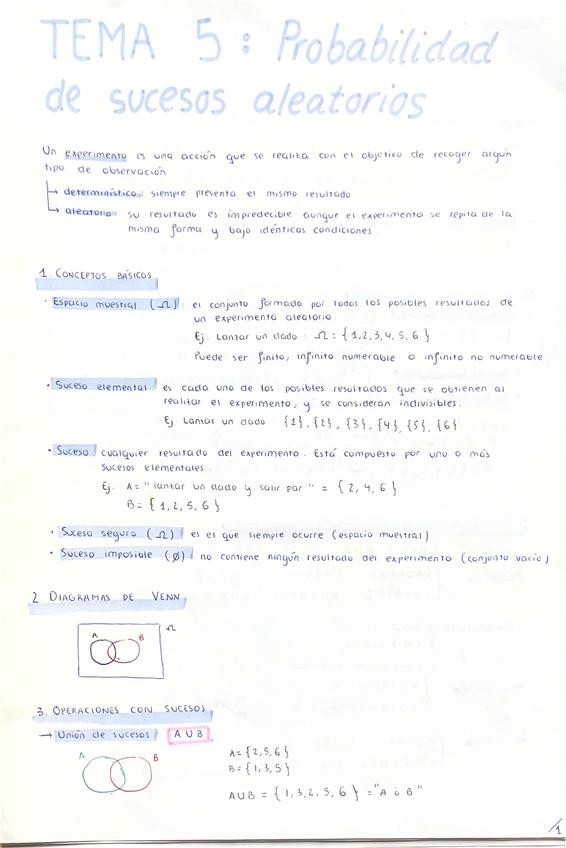 TEMA 5: Probabilidad
de sucesos aleatorios
Un experimento es una acción que se realiza con el objetivo de recoger algún
tipo de observación
→ determinístico: siempre presenta el mismo resultado
→ aleatorio: su resultado es impredecible aunque el experimento se repita de la
misma forma y bajo idénticas condiciones.
1. CONCEPTOS BÁSICOS
· Espacio muestral (Ω): el conjunto formado por todos los posibles resultados de
un experimento aleatorio
Ej. Lanzar un dado: Ω = {1,2,3,4,5,6}
Puede ser finito, infinito numerable o infinito no numerable
· Suceso elemental: es cada uno de los posibles resultados que se obtienen al
realizar el experimento, y se consideran indivisibles.
Ej. Lanzar un dado: {1}, {2}, {3}, {4}, {5}, {6}
· Suceso: cualquier resultado del experimento. Está compuesto por uno o más
sucesos elementales.
Ej. A = "lanzar un dado y salir par" = {2, 4, 6}
B = {1, 2, 5, 6}
· Suceso seguro (Ω): es el que siempre ocurre (espacio muestral)
· Suceso imposible (∅): no contiene ningún resultado del experimento (conjunto vacío)
2. DIAGRAMAS DE VENN
A B Ω
3. OPERACIONES CON SUCESOS
→ Unión de sucesos A U B
A B
A = {2,5,6}
B = {1,3,5}
A U B = {1, 3, 2, 5, 6} = "A ó B"
/1